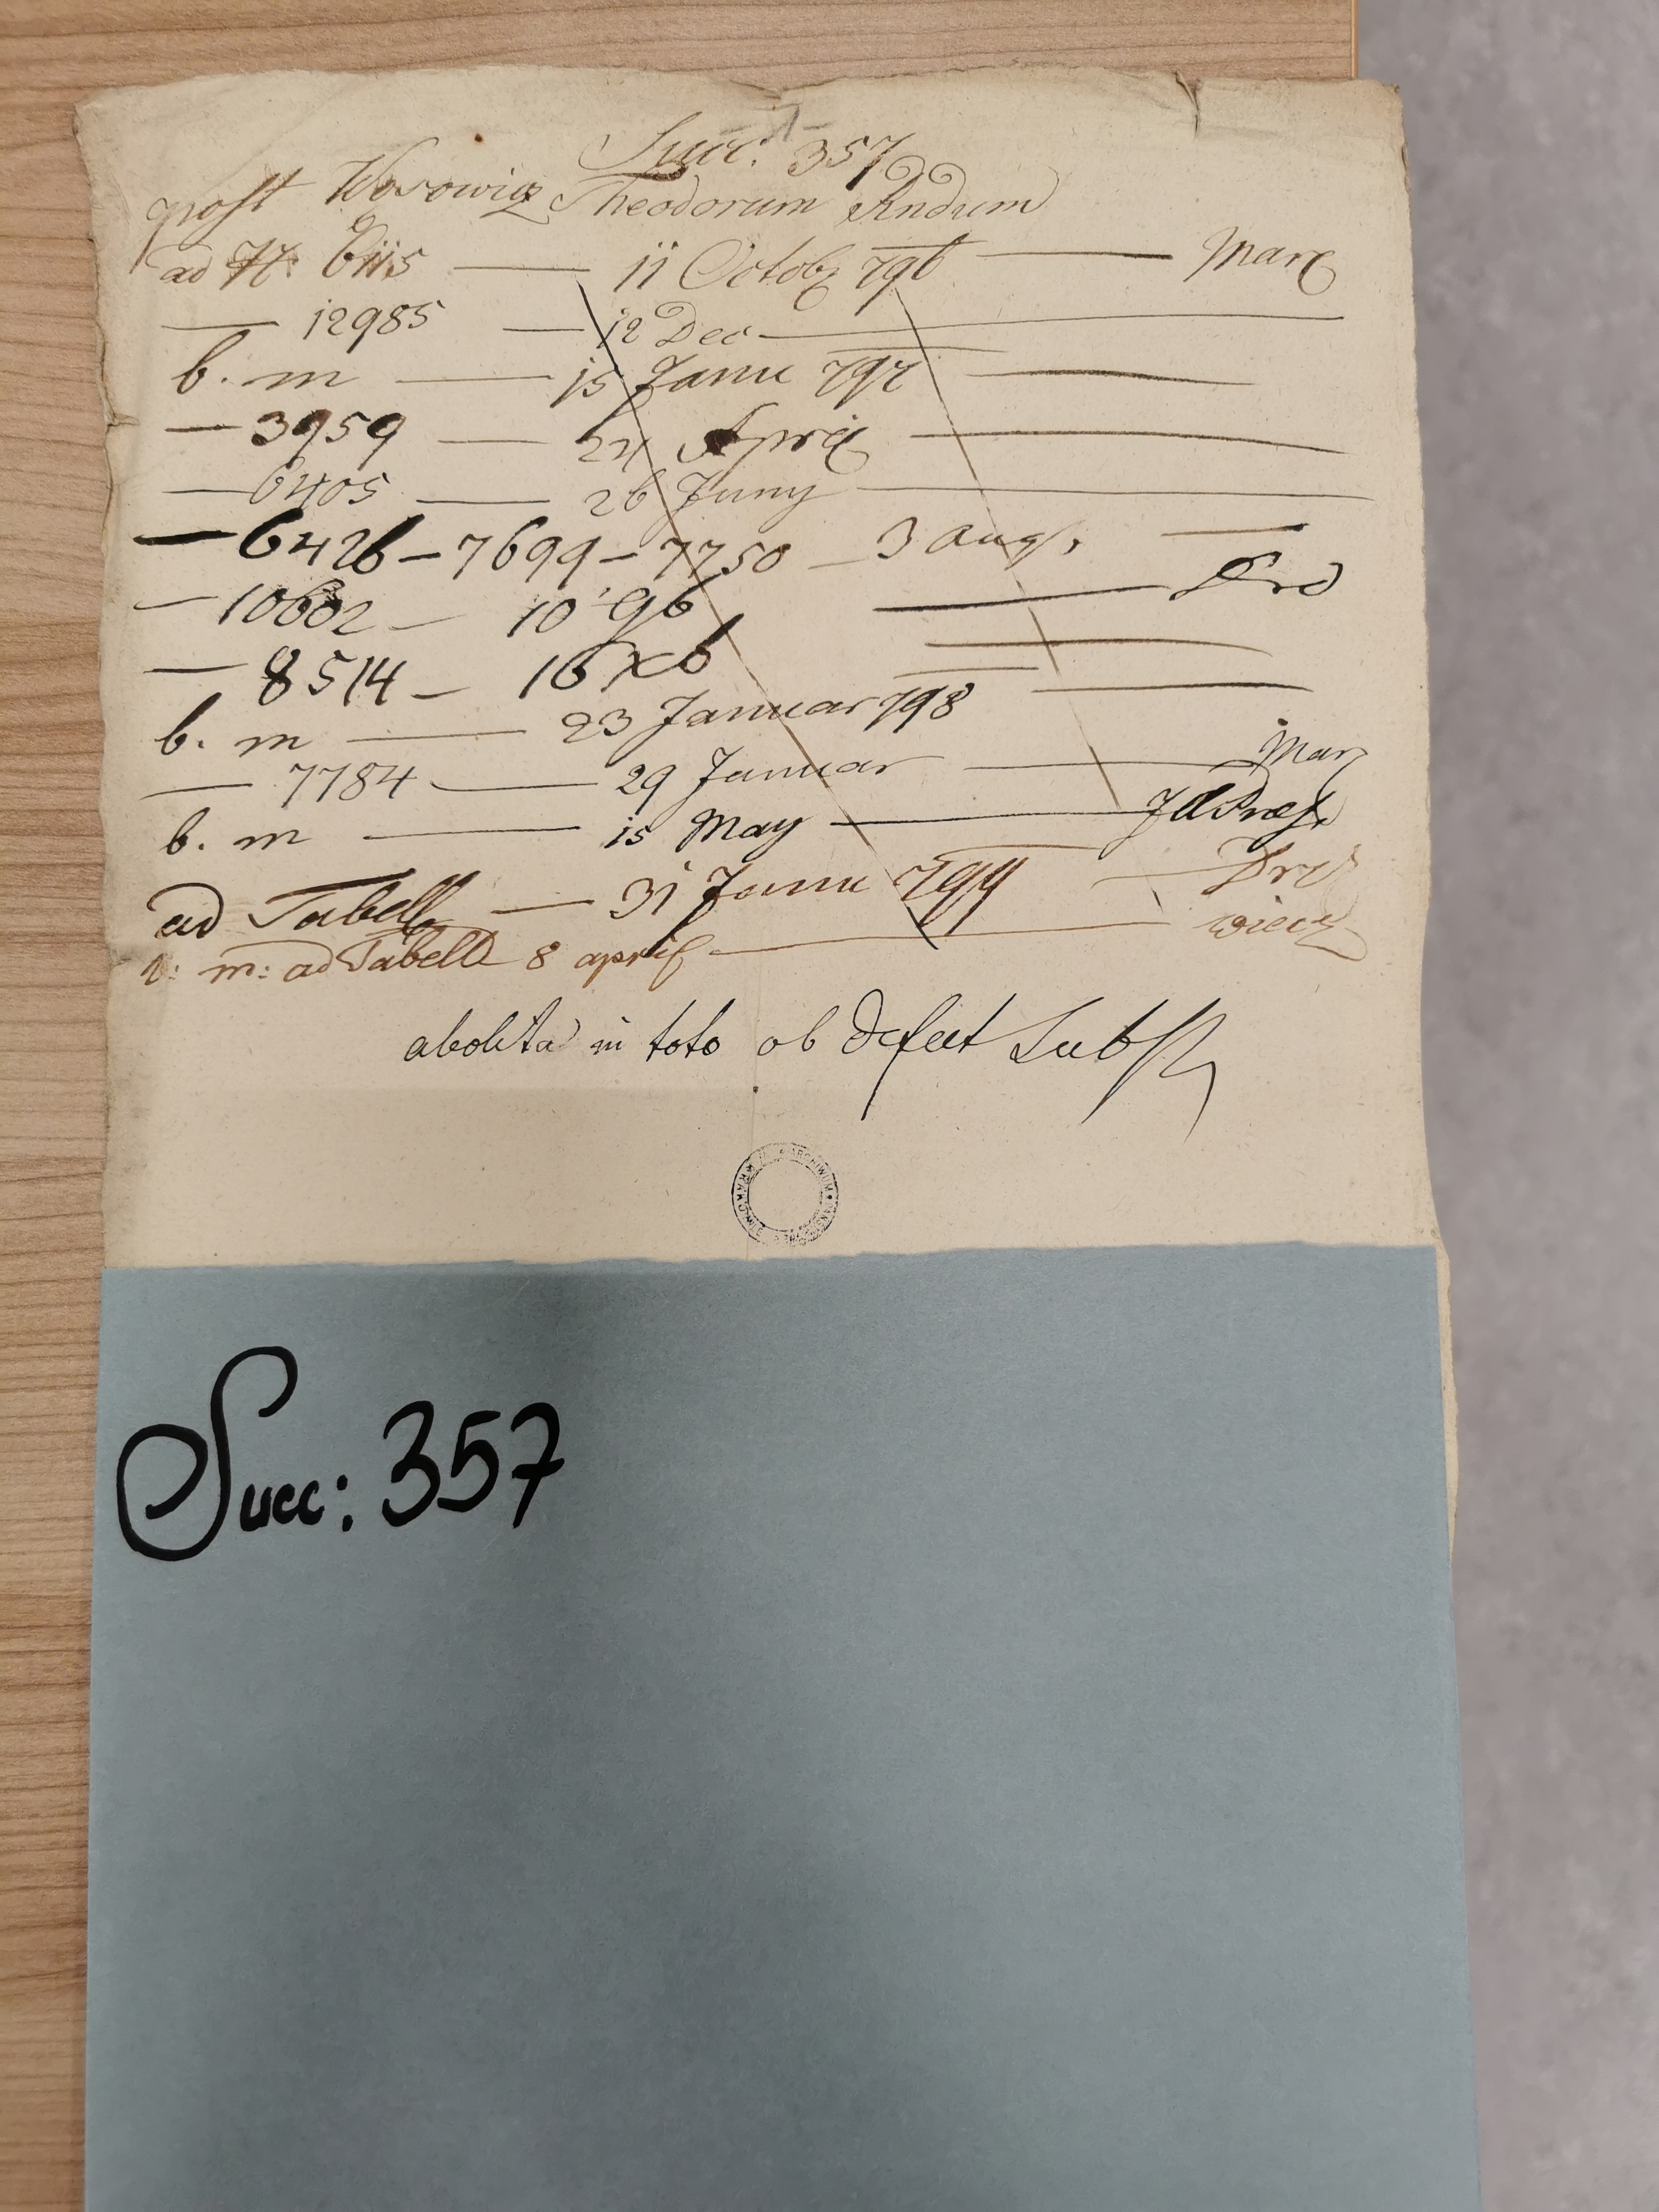 Succ: 357
post Wosowicz Theodorum Andream
ad N: 6115 — 11 Octob 796 — Marx
— 12985 — 12 Dec —
b. m — 15 Janu 797 —
— 3959 — 24 April —
— 6405 — 26 Juny —
— 6426 – 7699 – 7750 – 3 Aug. —
— 10602 — 10 9b — Prd
— 8514 — 16 xb —
b. m — 23 Januar 798 —
— 7784 — 29 Januar — Marx
b. m — 15 May —
ad Tabell — 31 Janu 799 —
b: m: ad Tabell 8 april —
abolita in toto ob defect Subst
ARCHIWUM
Succ: 357